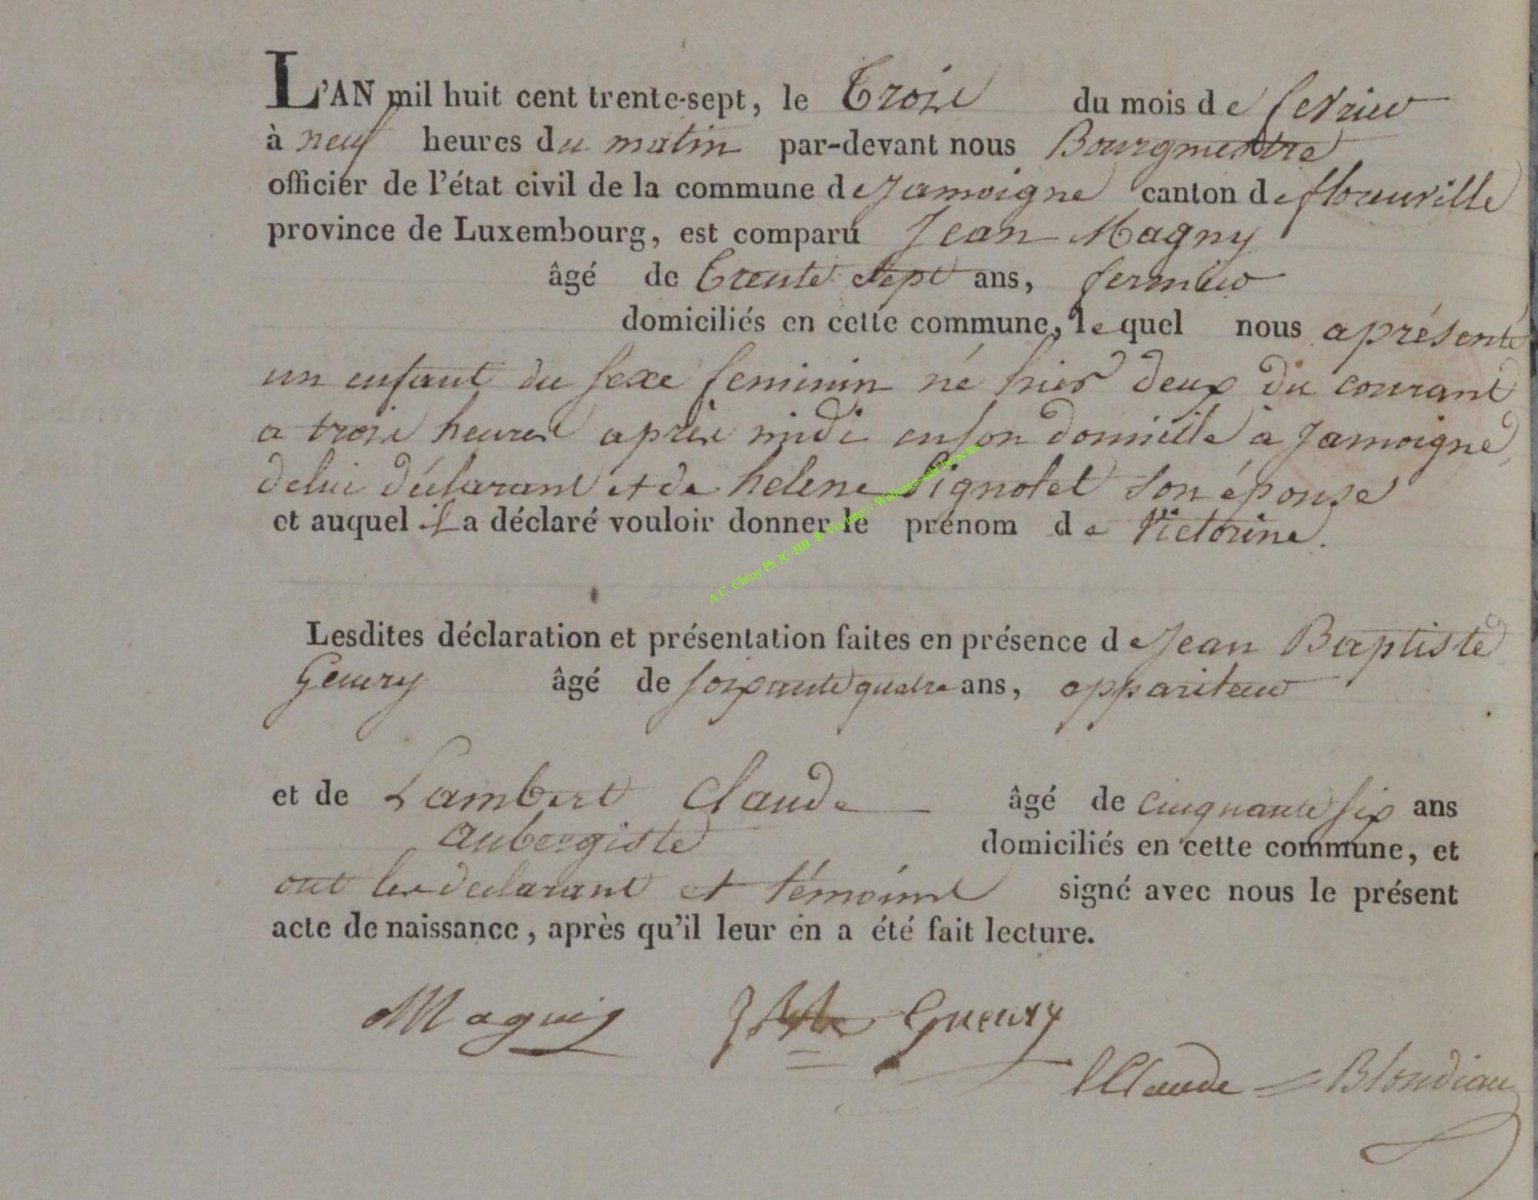 L'AN mil huit cent trente-sept, le Trois du mois de fevrier
à neuf heures du matin par-devant nous Bourgmestre
officier de l'état civil de la commune de Jamoigne canton de florenville
province de Luxembourg, est comparu Jean Magny
âgé de Trente sept ans, fermier
domiciliés en cette commune, lequel nous aprésenté
un enfant du sexe feminin né hier deux du courant
a trois heures après midi en son domicille à Jamoigne,
de lui déclarant et de helene Pignolet son épouse
et auquel il a déclaré vouloir donner le prénom de Victorine.
Lesdites déclaration et présentation faites en présence de Jean Baptiste
Gueury âgé de soixante quatre ans, appariteur
et de Lambert Claude âgé de cinquante six ans
aubergiste domiciliés en cette commune, et
ont les declarant et témoins signé avec nous le présent
acte de naissance, après qu'il leur en a été fait lecture.
Magny J Bte Gueury
LClaude Blondiau